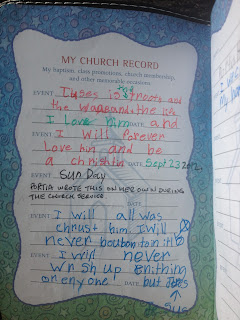 MY CHURCH RECORD
My baptism, class promotions, church membership,
and other memorable occasions.
EVENT Iyses is the troots and
the way and the life
EVENT I Love him DATE and
EVENT I will forever
Love him and be
a christin DATE Sept 23 2012
EVENT Sun Day
PORTIA WROTE THIS ON HER OWN DURING
THE CHURCH SERVICE. DATE
EVENT I will all was
chrust him. I will
EVENT never DATE
EVENT I will never
wrshup enthing
or enyone! DATE but